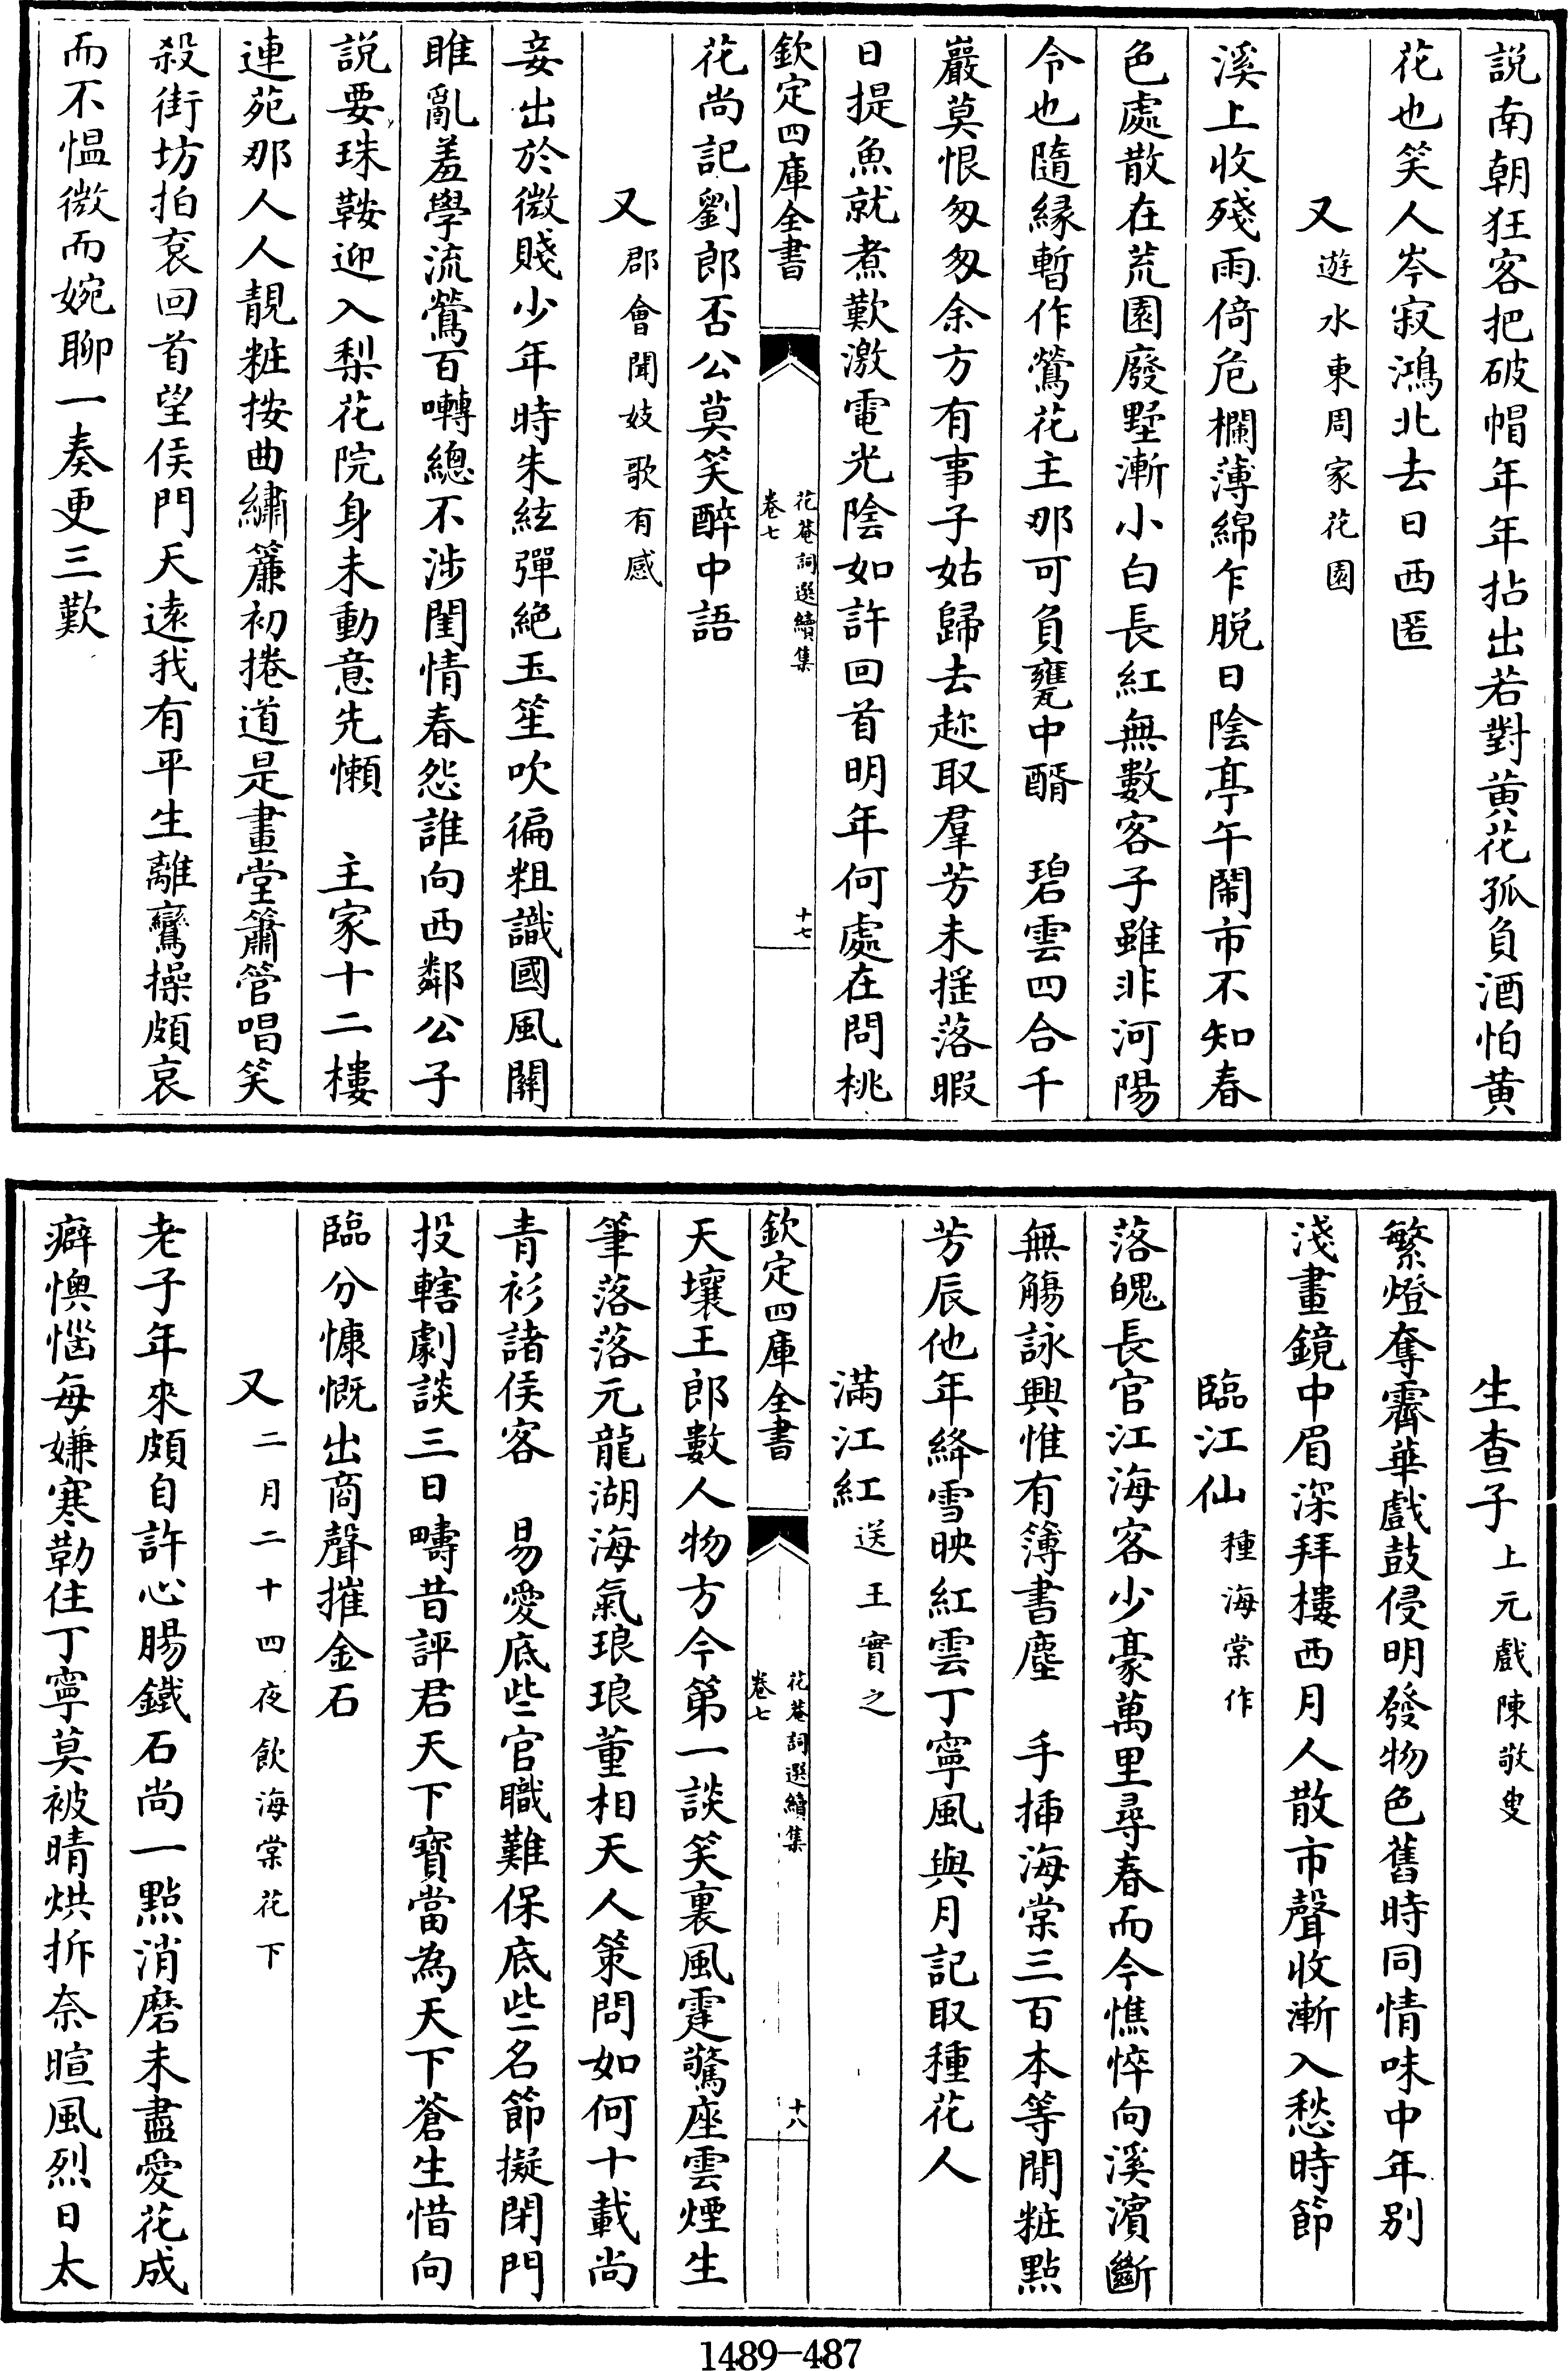 說南朝狂客把破帽年年拈出若對黃花孤負酒怕黃
花也笑人岑寂鴻北去日西匿
又遊水東周家花園
溪上收殘雨倚危欄薄綿乍脱日陰亭午鬧市不知春
色處散在荒園廢墅漸小白長紅無數客子雖非河陽
令也隨緣暫作鶯花主那可負甕中醑　碧雲四合千
巖莫恨匆匆余方有事子姑歸去趂取羣芳未搖落暇
日提魚就煮歎激電光陰如許回首明年何處在問桃
欽定四庫全書
花菴詞選續集
卷七
十七
花尚記劉郎否公莫笑醉中語
又郡會聞妓歌有感
妾出於微賤少年時朱絃彈絶玉笙吹徧粗識國風關
雎亂羞學流鶯百囀總不涉閨情春怨誰向西鄰公子
說要珠鞍迎入梨花院身未動意先懶　主家十二樓
連苑那人人靚粧按曲繡簾初捲道是畫堂簫管唱笑
殺街坊拍衮回首望侯門天遠我有平生離鸞操頗哀
而不愠微而婉聊一奏更三歎
生查子上元戲陳敬叟
繁燈奪霽華戲鼓侵明發物色舊時同情味中年别
淺畫鏡中眉深拜樓西月人散市聲收漸入愁時節
臨江仙種海棠作
落魄長官江海客少豪萬里尋春而今憔悴向溪濵斷
無觴詠興惟有簿書塵　手挿海棠三百本等閒粧點
芳辰他年絳雪映紅雲丁寧風與月記取種花人
滿江紅送王實之
欽定四庫全書
花菴詞選續集
卷七
十八
天壤王郎數人物方今第一談笑裏風霆驚座雲煙生
筆落落元龍湖海氣琅琅董相天人策問如何十載尚
青衫諸侯客　易愛底些官職難保底些名節擬閉門
投轄劇談三日疇昔評君天下寳當為天下蒼生惜向
臨分慷慨出商聲摧金石
又二月二十四夜飲海棠花下
老子年來頗自許心腸鐵石尚一點消磨未盡愛花成
癖懊惱每嫌寒勒住丁寧莫被晴烘拆奈暄風烈日太
1489-487